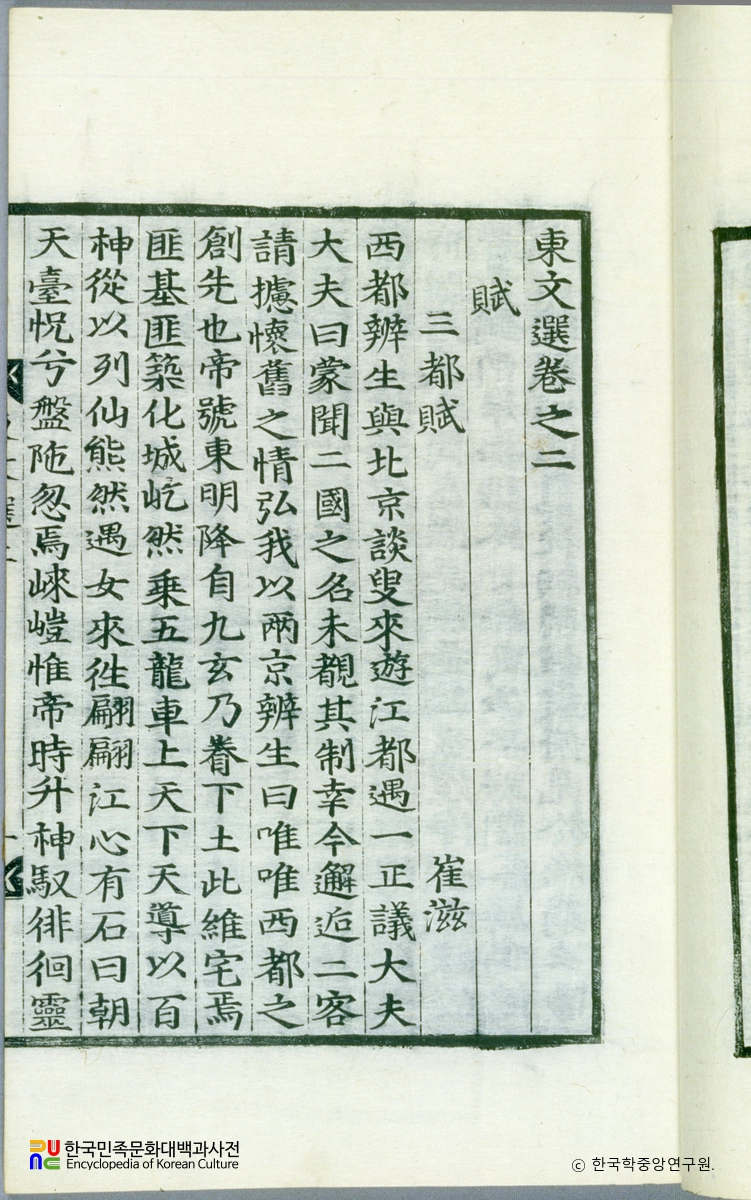 東文選卷之二
賦
三都賦 崔滋
西都辨生與北京談叟來遊江都遇一正議大夫
大夫曰蒙聞二國之名未覩其制幸今邂逅二客
請攄懷舊之情弘我以兩京辨生曰唯唯西都之
創先也帝號東明降自九玄乃眷下土此維宅焉
匪基匪築化城屹然乗五龍車上天下天導以百
神從以列仙熊然遇女來徃翩翩江心有石曰朝
天臺怳兮盤陁忽焉崍嵦惟帝時升神馭徘徊靈
한국민족문화대백과사전
Encyclopedia of Korean Culture
© 한국학중앙연구원.